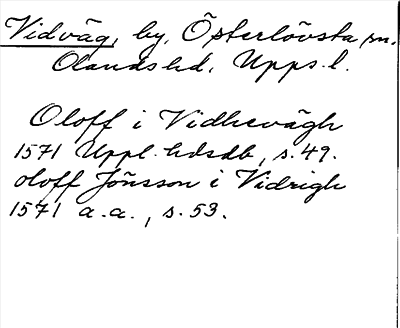 Vidväg, by, Österlövsta sn.
Olands hd, Upps. l.
Oloff i Vidhevägh
1571 Uppl. hdsdb, s. 49.
oloff Jönsson i Vidrigh
1571 a.a., s. 53.